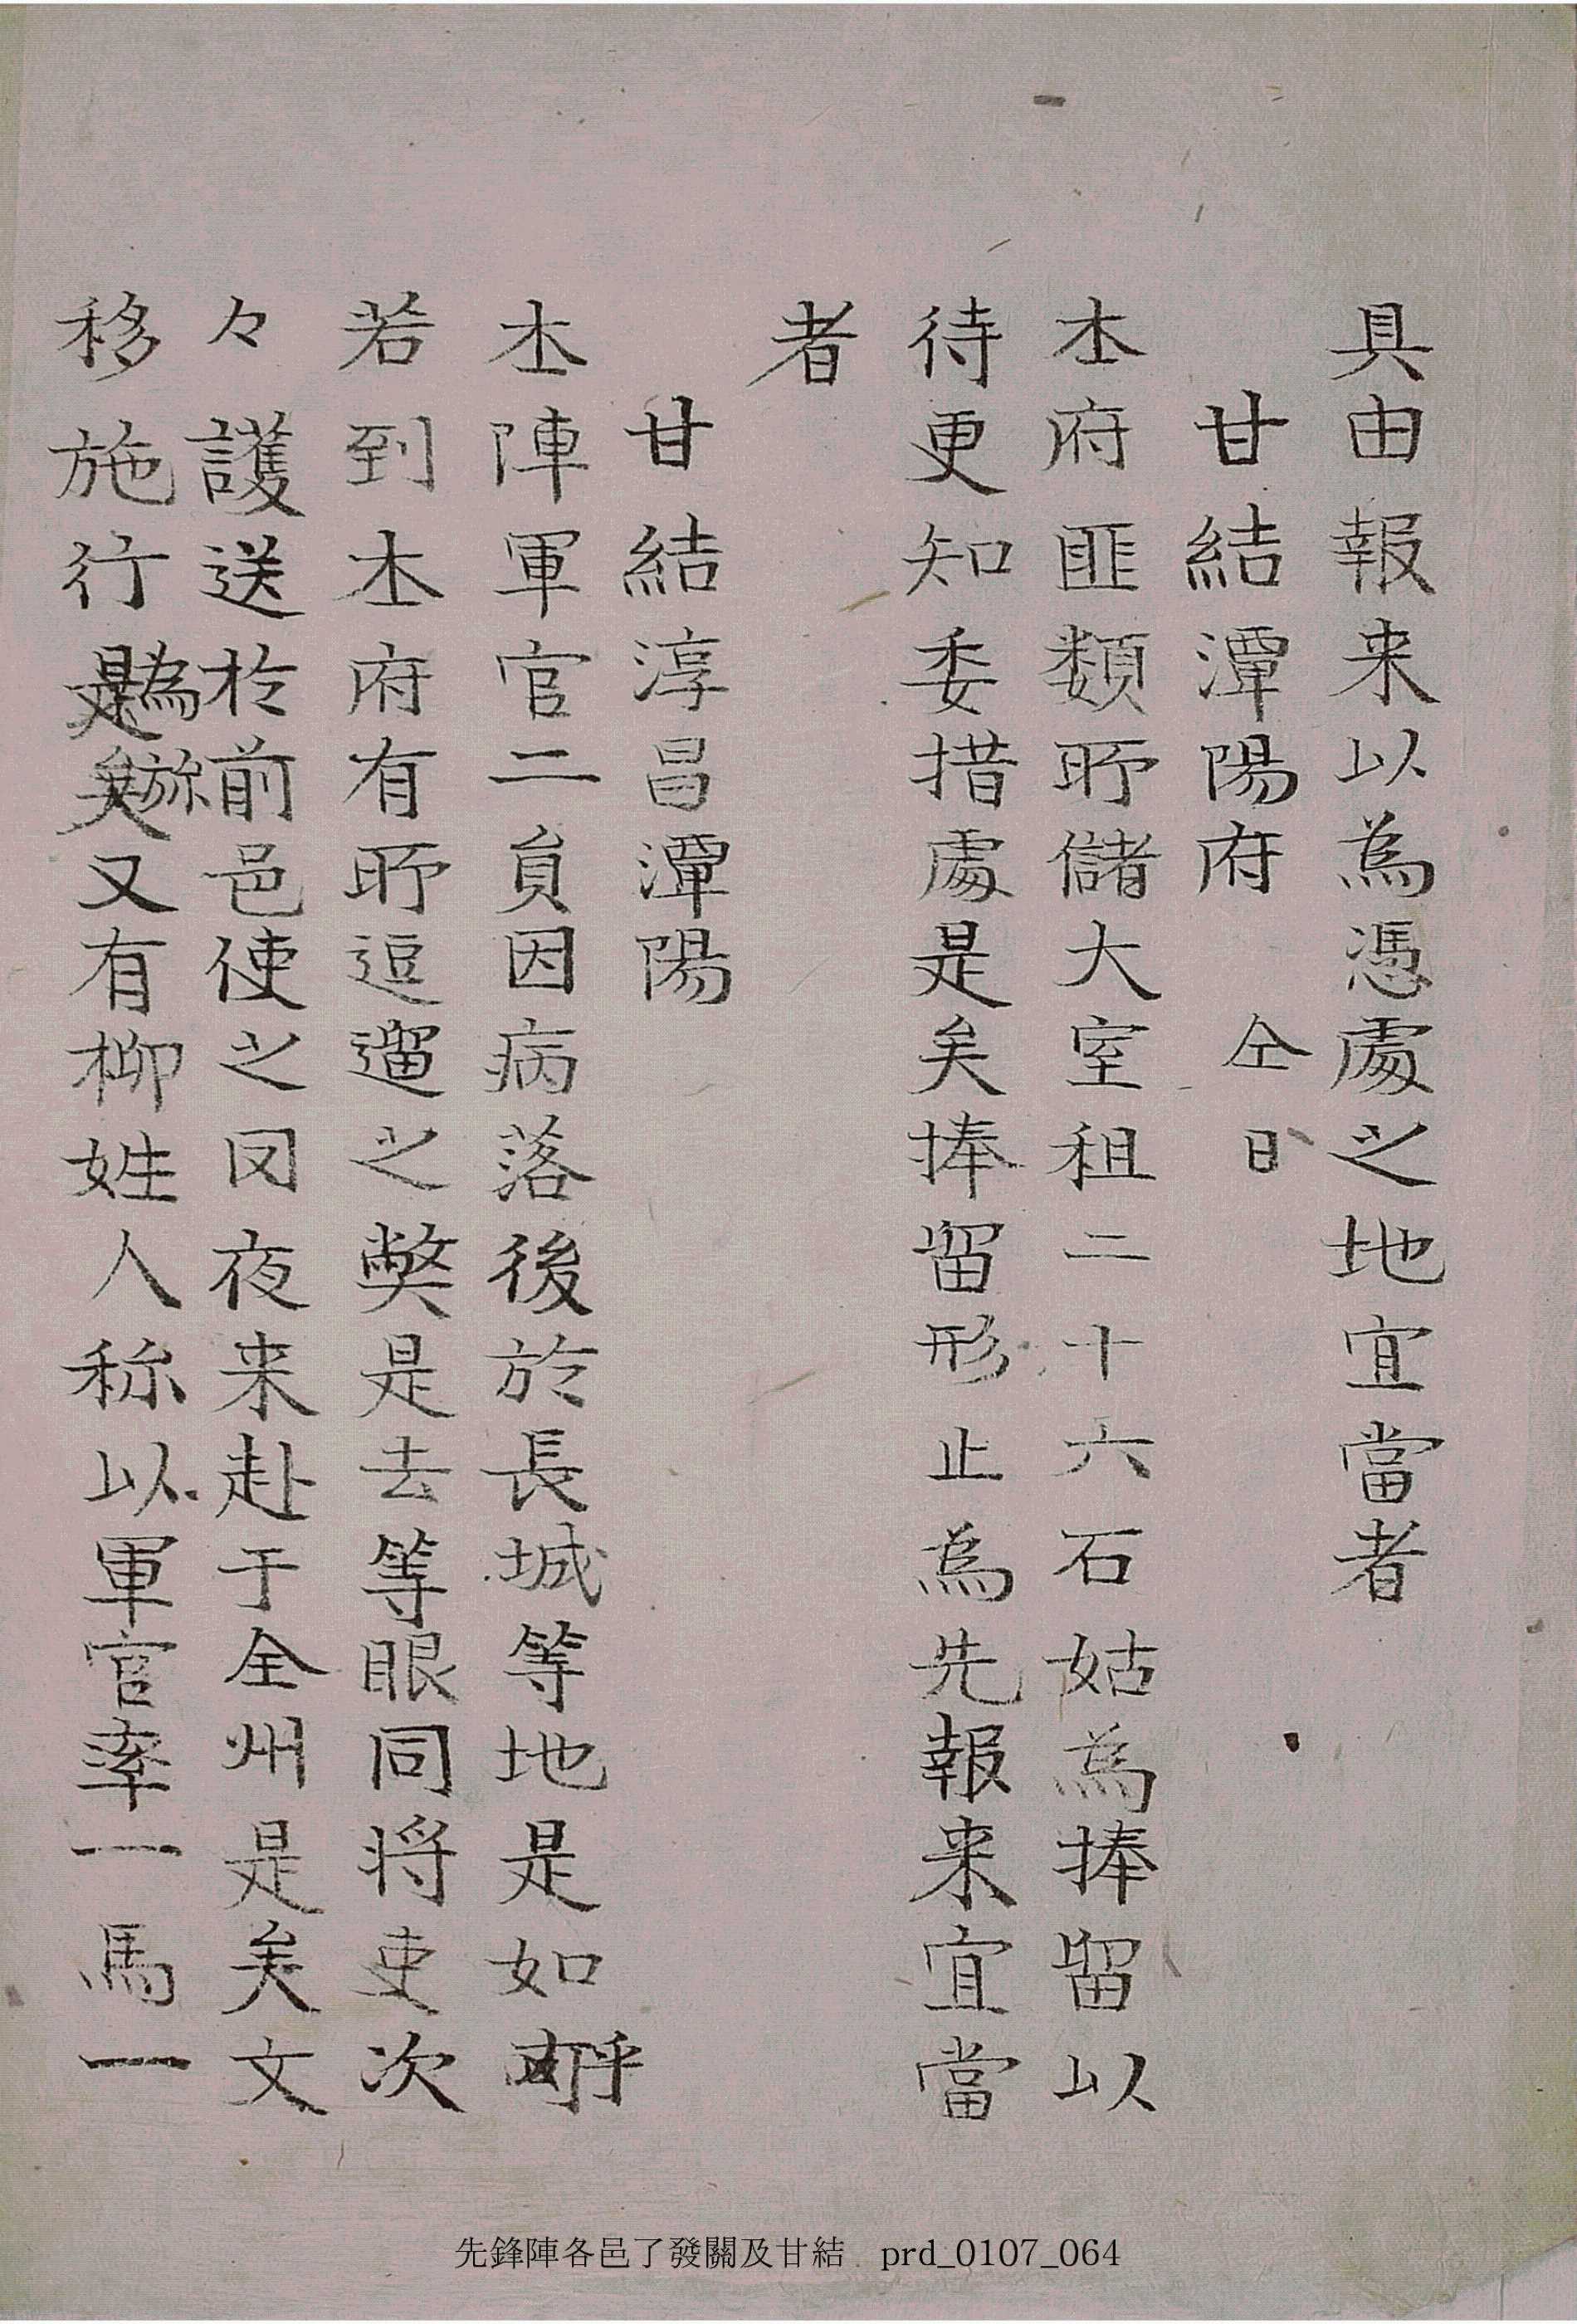 具由報来以為憑處之地宜當者
甘結潭陽府 仝日
本府匪類所儲大室租二十六石姑為捧留以
待更知委措處是矣捧留形止為先報来宜當
者
甘結淳昌潭陽
本陣軍官二員因病落後於長城等地是如乎
若到本府有所逗遛之弊是去等眼同将吏次
々護送於前邑使之罔夜来赴于全州是矣文
移施行為旀又有柳姓人称以軍官率一馬一
先鋒陣各邑了發關及甘結 prd_0107_064